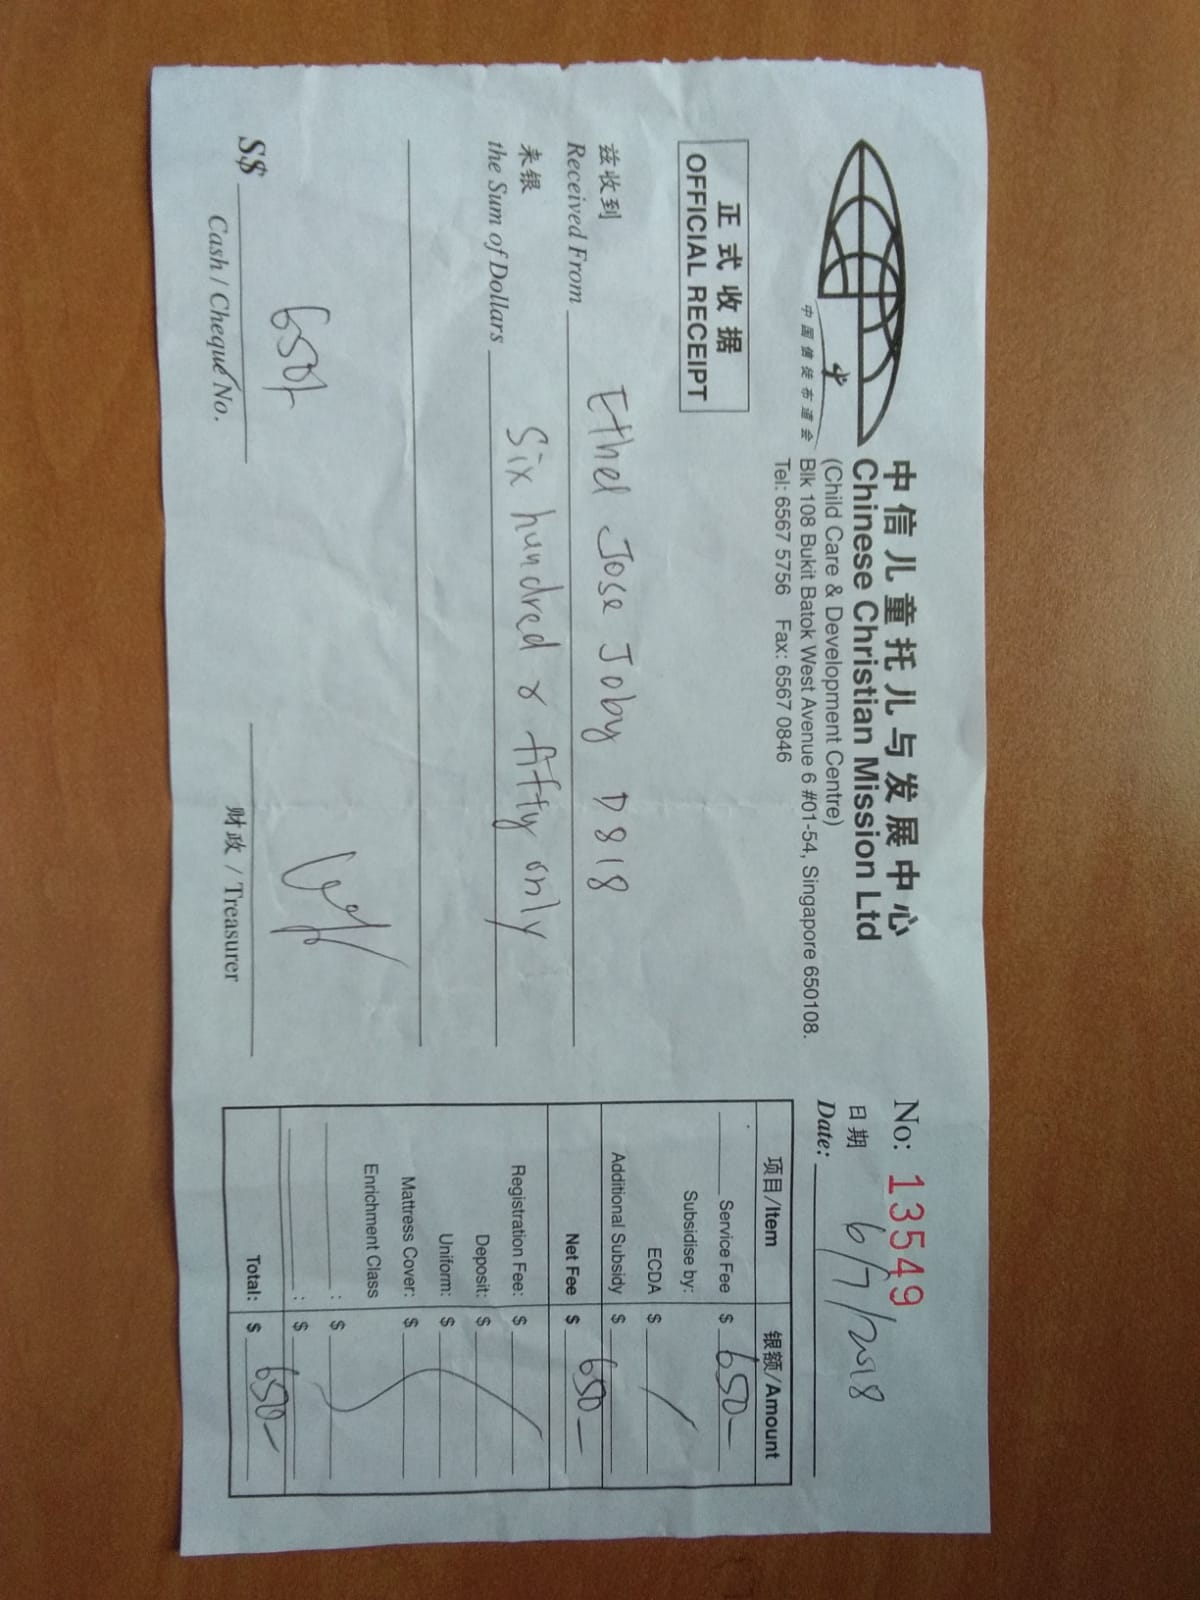 中信儿童托儿与发展中心
Chinese Christian Mission Ltd
(Child Care & Development Centre)
Blk 108 Bukit Batok West Avenue 6 #01-54, Singapore 650108.
Tel: 6567 5756 Fax: 6567 0846
中国信徒布道会
No: 13549
日期
Date: 6/7/2018
正式收据
OFFICIAL RECEIPT
兹收到
Received From Ethel Jose Joby D818
来银
the Sum of Dollars Six hundred & fifty only
S$ 650/-
Cash / Cheque No.
财政 / Treasurer
项目/Item 银额/Amount
Service Fee $ 650-
Subsidise by:
ECDA $
Additional Subsidy $
Net Fee $ 650-
Registration Fee: $
Deposit: $
Uniform: $
Mattress Cover: $
Enrichment Class
: $
: $
Total: $ 650-